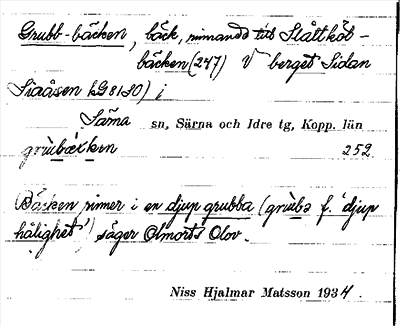 Grubb-bäcken, bäck, rinnande till Slåttköt-
bäcken (247) V berget Sidan
(G 8180) i
Särna sn, Särna och Idre tg, Kopp. län
grùbǝbäxken 252
Bäcken rinner i en djup grubba (grùbǝ f. 'djup
hålighet') säger Olmorts Olov.
Niss Hjalmar Matsson 1934.